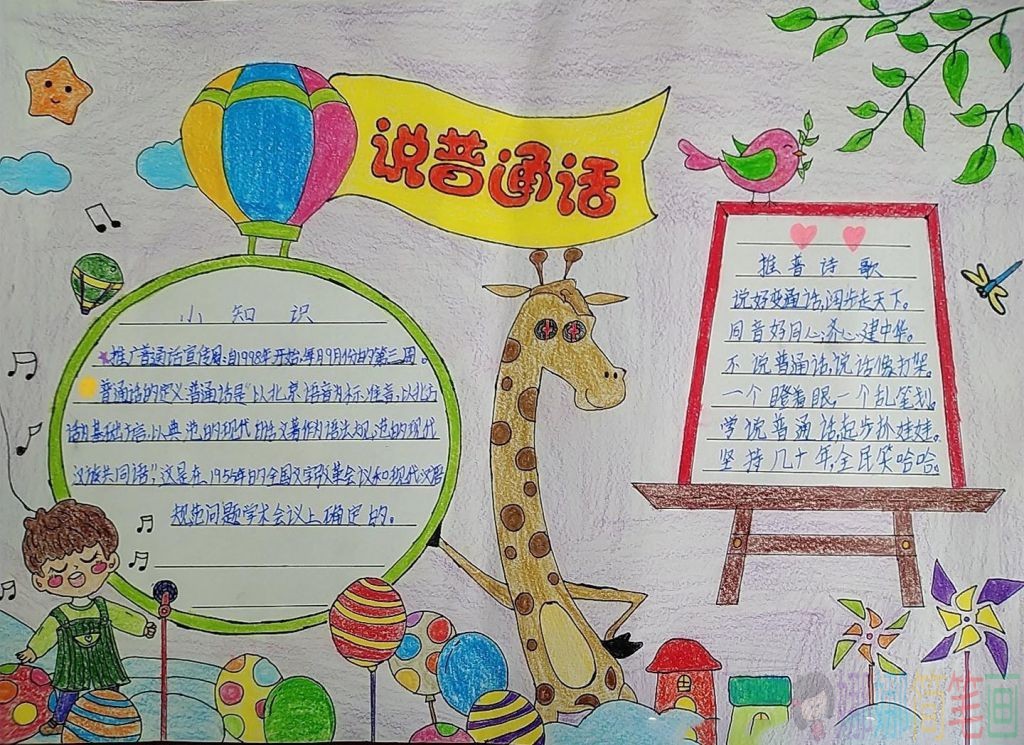 说普通话
小知识
推广普通话宣传周:自1998年开始,每月9月份的第三周。
普通话的定义:普通话是"以北京语音为标准音,以北方
话为基础方言,以典范的现代白话文著作为语法规范的现代
汉族共同语",这是在1955年的全国文字改革会议和现代汉语
规范问题学术会议上确定的。
推普诗歌
说好普通话,阔步走天下。
同音好同心,齐心建中华。
不说普通话,说话像打架。
一个瞪着眼,一个乱笔划。
学说普通话,起步抓娃娃。
坚持几十年,全民笑哈哈。
笔画